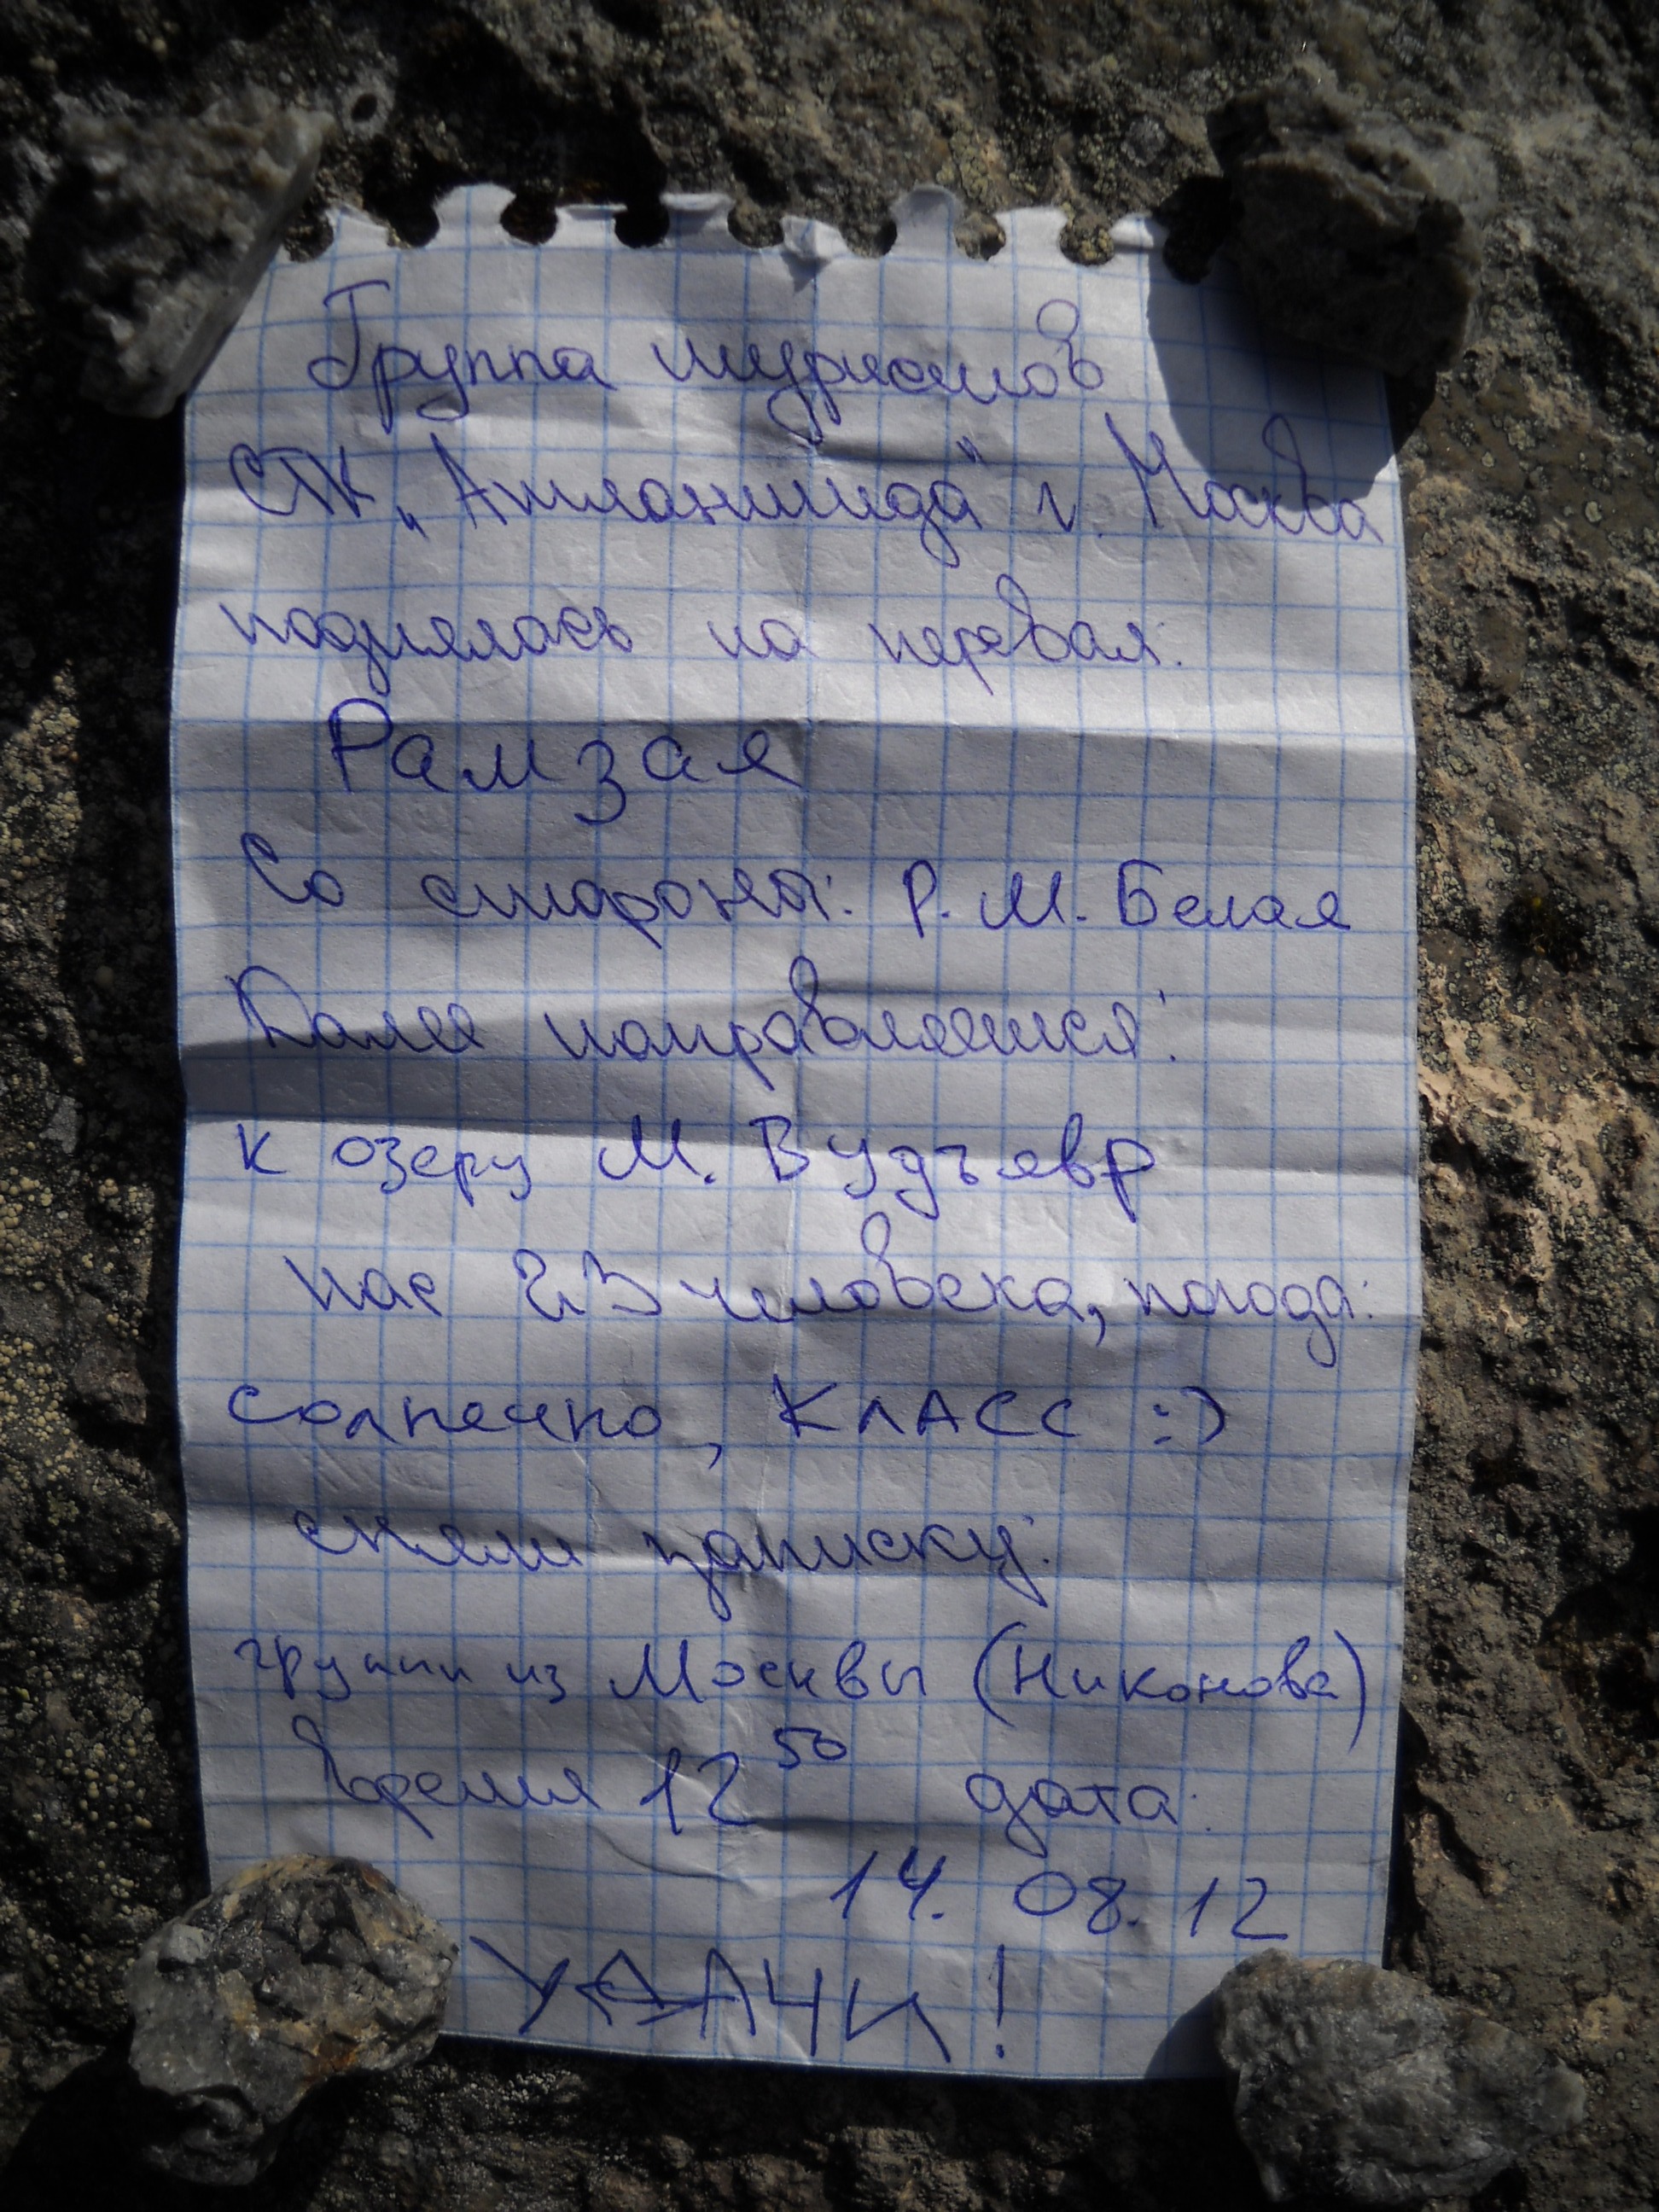 Группа туристов
СТК „Атлантида" г. Москва
поднялась на перевал:
Рамзая
Со стороны: р. М. Белая
Далее направляемся:
к озеру М. Вудъявр
нас 23 человека, погода:
солнечно, КЛАСС :)
сняли записку:
группы из Москвы (Никонова)
время 12 50 дата:
14. 08. 12
УДАЧИ!